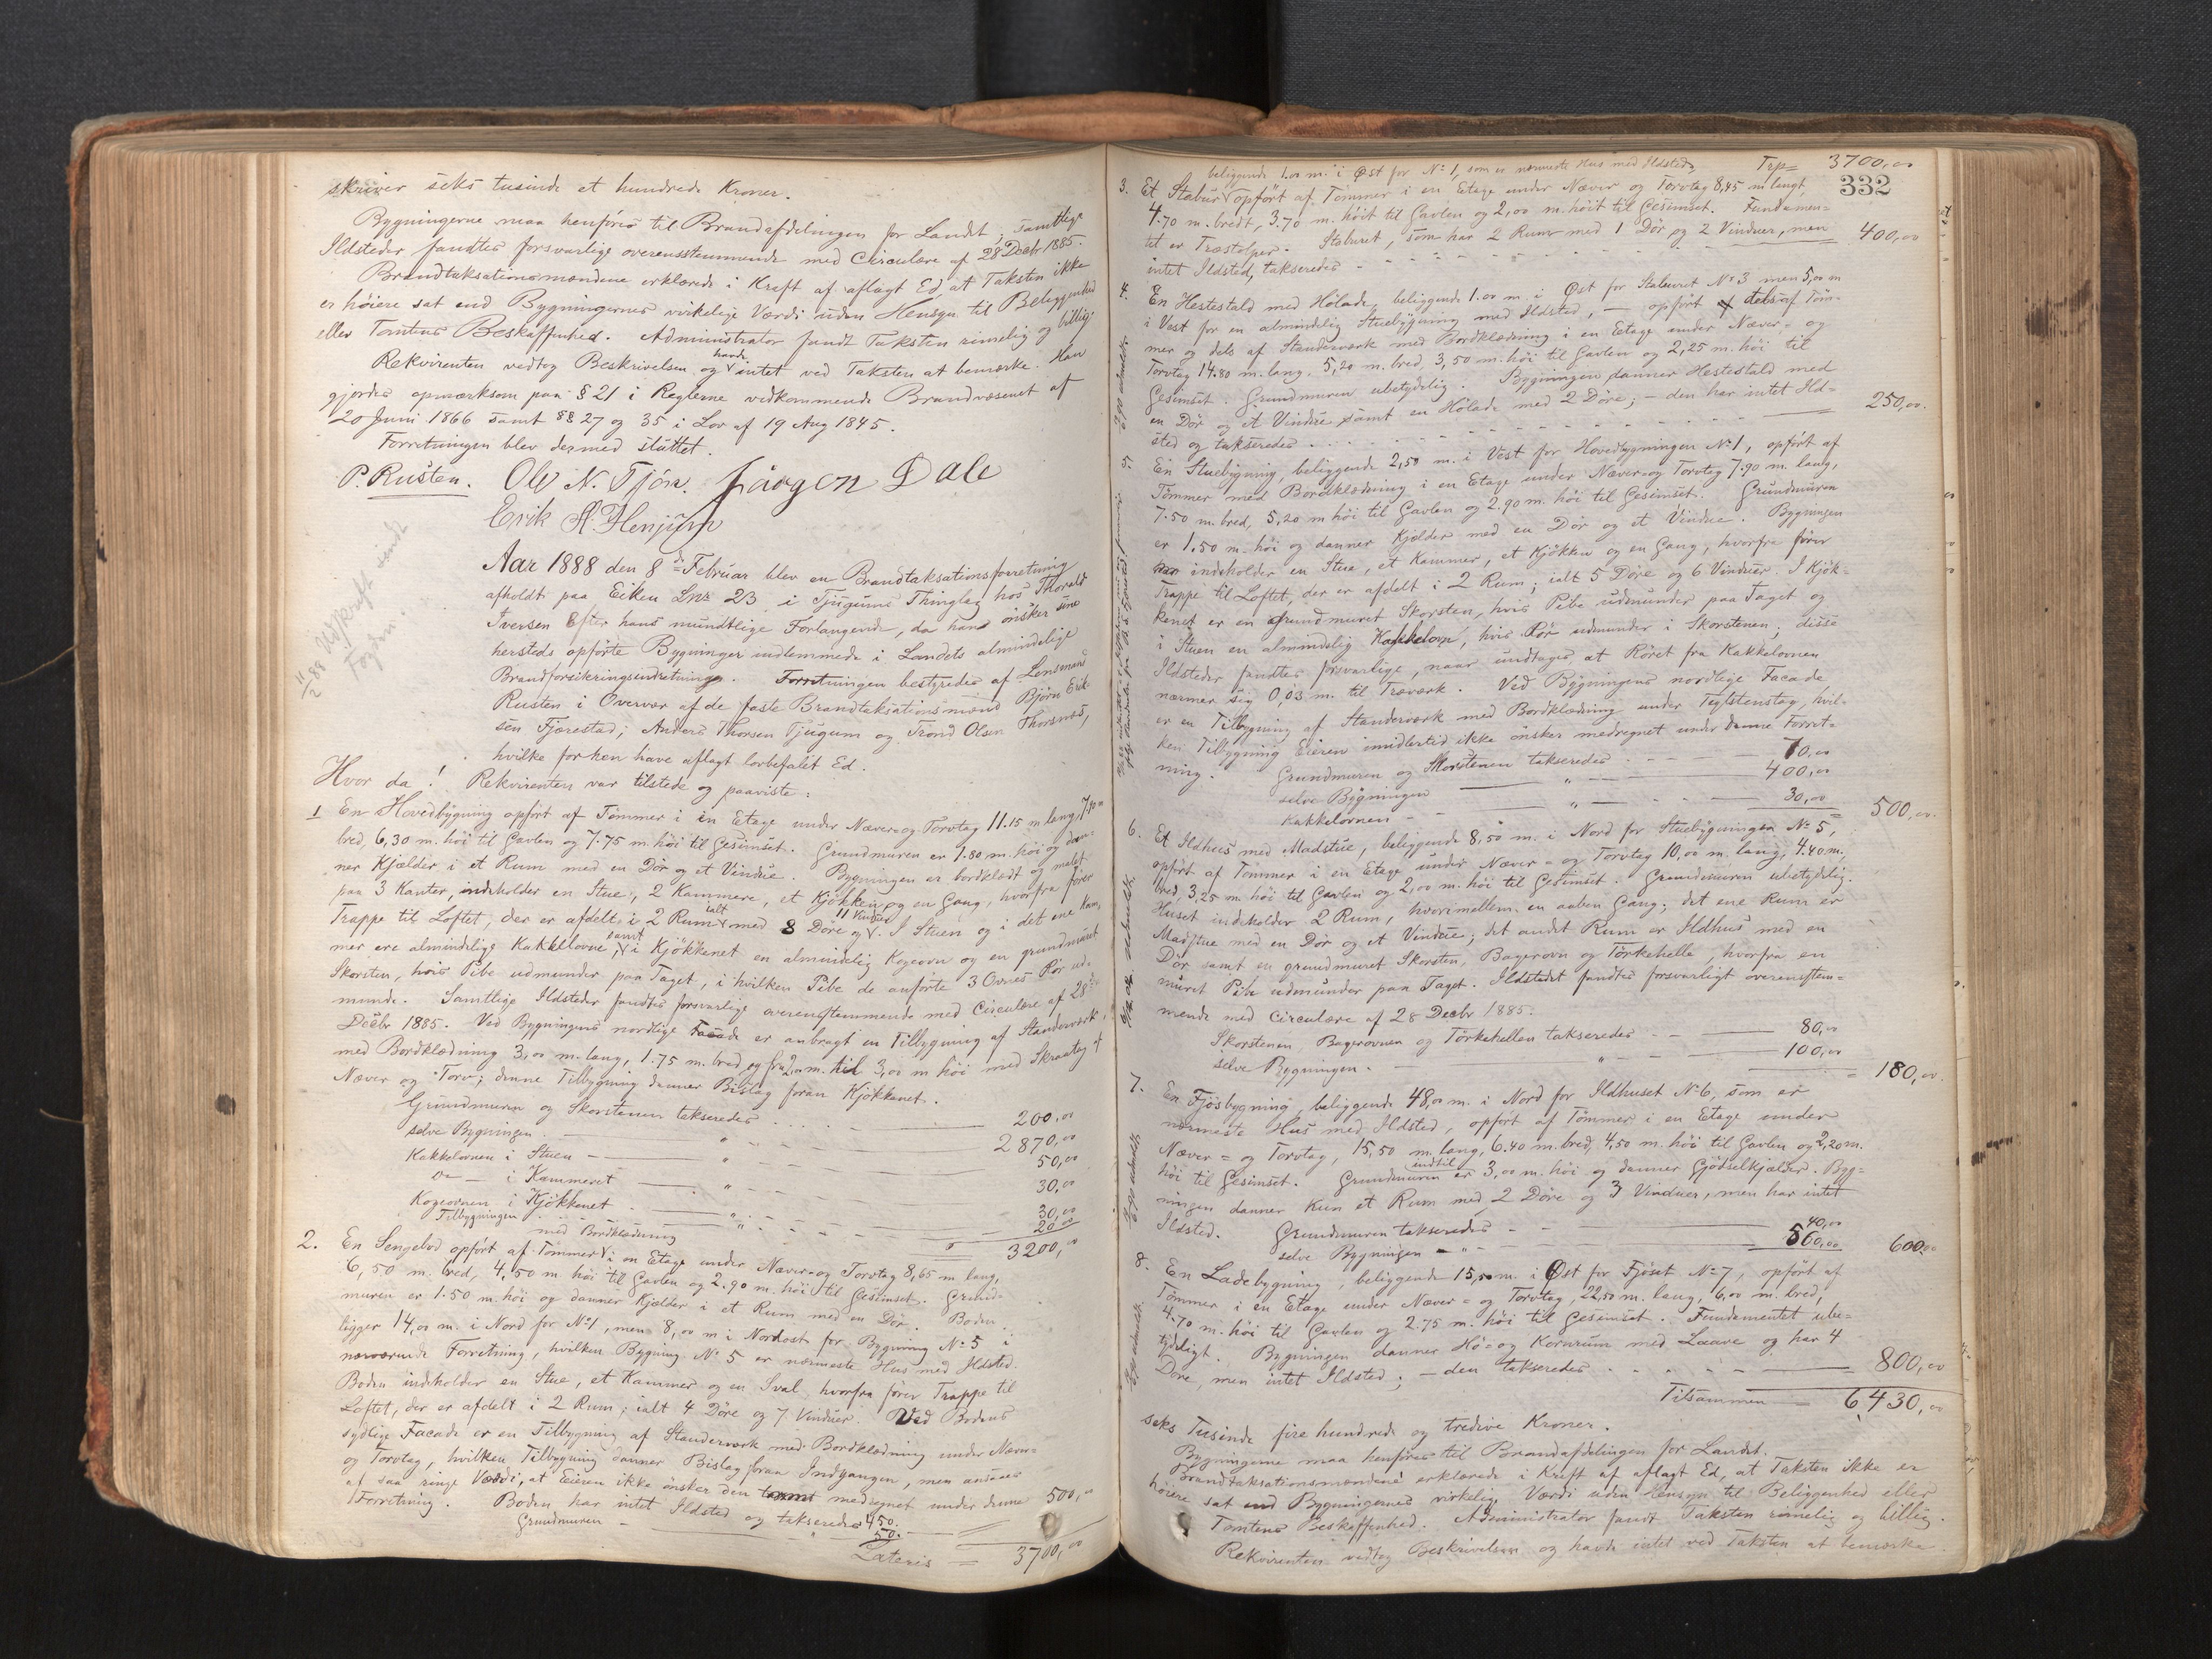 skriver seks tusinde et hundrede Kroner.
Bygningerne maa henföres til Brandafdelingen for Landet; samtlige
Ildsteder fandtes forsvarlige overensstemmende med Circulære af 28 Decbr 1885.
Brandtaksationsmændene erklærede i Kraft af aflagt Ed, at Taksten ikke
er höiere sat end Bygningernes virkelige Værdi uden Hensyn til Beliggenhed
eller Tomtens Beskaffenhed. Administrator fandt Taksten rimelig og billig.
Rekvirenten vedtog Beskrivelsen og havde intet ved Taksten at bemærke. Han
gjordes opmærksom paa § 21 i Reglerne vedkommende Brandvæsenet af
20 Juni 1866 samt §§ 27 og 35 i Lov af 19 Aug 1845.
Forretningen blev dermed sluttet.
P. Rusten. Ole N. Tjön. Jörgen Dale
Erik A. Henjum
11/2 88 Udskrift sendt
Fogden.
Aar 1888 den 8de Februar blev en Brandtaksationsforretning
afholdt paa Eiken Lnr 23 i Tjugums Thinglag hos Thorald
Iversen Efter hans mundtlige Forlangende, da hans önsker sine
hersteds opförte Bygninger indlemmede i Landets almindelige
Brandforsikringsindretning. Forretningen bestyredes af Lensmand
Rusten i Overvær af de faste Brandtaksationsmænd Björn Erik-
sen Fjærestad; Anders Thorsen Tjugum og Trond Olsen Thorsnes,
hvilke forhen have aflagt lovbefalet Ed.
Hvor da! Rekvirenten var tilstede og paaviste:
1 En Hovedbygning opfört af Tömmer i en Etage under Næver og Torvtag 11.15 m lang, 7.90 m
bred, 6,30 m. höi til Gavlen og 7.75 m. höi til Gesimset. Grundmuren er 1.80 m. höi og dan-
ner Kjælder i et Rum med en Dör og et Vindue. Bygningen er bordklædt og malet
paa 3 Kanter, indeholder en Stue, 2 Kammere, et Kjökken og en Gang, hvorfra förer
Trappe til Loftet, der er afdelt i 2 Rum ialt med 8 Döre og 11 Vinduer. I Stuen og i det ene Kam-
mer ere almindelige Kakkelovne, samt i Kjökkenet en almindelig Kogeovn og en grundmuret
Skorsten, hvis Pibe udmunder paa Taget, i hvilken Pibe de anförte 3 Ovnes Rör ud-
munde. Samtlige Ildsteder fandtes forsvarlige overensstemmende med Circulære af 28de
Decbr 1885. Ved Bygningens nordlige Facade er anbragt en Tilbygning af Standerværk
med Bordklædning 3,00 m. lang, 1.75 m. bred og fra 2,00 m. til 3,00 m höi med Skraatag af
Næver og Torv; denne Tilbygning danner Bislag foran Kjökkenet.
Grundmuren og Skorstenen takseredes 200,00
selve Bygningen " 2870,00
Kakkelovnen i Stuen " 50,00
Do i Kammeret " 30,00
Kogeovnen i Kjökkenet " 30,00
Tilbygningen " 20,00
3200,00
2. En Sengebod opfört af Tömmer med Bordklædning i en Etage under Næver og Torvtag 8,65 m lang,
6,50 m. bred, 4,50 m höi til Gavlen og 2.90 m. höi til Gesimset. Grund-
muren er 1.50 m. höi og danner Kjælder i et Rum med en Dör. Boden
ligger 14,00 m. i Nord for No 1, men 8,00 m i Nordost for Bygning No 5 i
nærværende Forretning, hvilken Bygning No 5 er nærmeste Hus med Ildsted.
Boden indeholder en Stue, et Kammer og en Sval, hvorfra förer Trappe til
Loftet, der er afdelt i 2 Rum; ialt 4 Döre og 7 Vinduer. Ved Bodens
sydlige Facade er en Tilbygning af Standerværk med Bordklædning under Næver
og Torvtag, hvilken Tilbygning danner Bislag foran Indgangen, men ansees
af saa ringe Værdi, at Eieren ikke önsker den medregnet under denne
Forretning. Boden har intet Ildsted og takseredes 450. 500,00
Grundmuren " 50.
Lateris = 3700,00
332
Trp= 3700,00
beliggende 1.00 m. i Öst for No 1, som er nærmeste Hus med Ildsted,
3. Et Stabur opfört af Tömmer i en Etage under Næver og Torvtag 8,45 m langt,
4.70 m. bredt, 3.70 m. höit til Gavlen og 2,00 m. höit til Gesimset. Fundamen-
tet er Træstolper. Staburet, som har 2 Rum med 1 Dör og 2 Vinduer, men
intet Ildsted, takseredes 400,00
4. En Hestestald med Hölade, beliggende 1.00 m. i Öst for Staburet No 3 men 5,00 m
i Vest for en almindelig Stuebygning med Ildsted, — opfört dels af Töm-
mer og dels af Standerværk med Bordklædning i en Etage under Næver- og
Torvtag 14.80 m. lang, 5,20 m. bred, 3,50 m. höi til Gavlen og 2,25 m. höi til
Gesimset. Grundmuren ubetydelig. Bygningen danner Hestestald med
en Dör og et Vindue samt en Hölade med 2 Döre; — den har intet Ild-
sted og takseredes 250,00.
5. En Stuebygning, beliggende 2,50 m. i Vest for Hovedbygningen No 1, opfört af
Tömmer med Bordklædning i en Etage under Næver- og Torvtag 7.90 m. lang,
7.50 m. bred, 5,20 m höi til Gavlen og 2.90 m. höi til Gesimset. Grundmuren
er 1.50 m. höi og danner Kjælder med en Dör og et Vindue. Bygningen
indeholder en Stue, et Kammer, et Kjökken og en Gang, hvorfra förer
Trappe til Loftet, der er afdelt i 2 Rum; ialt 5 Döre og 6 Vinduer. I Kjök-
kenet er en grundmuret Skorsten, hvis Pibe udmunder paa Taget og
i Stuen en almindelig Kakkelovn, hvis Rör udmunder i Skorstenen; disse
Ildsteder fandtes forsvarlige, naar undtages, at Röret fra Kakkelovnen
nærmer sig 0,03 m. til Træværk. Ved Bygningens nordlige Facade
er en Tilbygning af Standerværk med Bordklædning under Teglstenstag, hvil-
ken Tilbygning Eieren imidlertid ikke önsker medregnet under denne Forret-
ning. Grundmuren og Skorstenen takseredes 70,00
selve Bygningen " 400,00
Kakkelovnen " 30,00
500,00.
6. Et Ildhus med Madstue, beliggende 8,50 m. i Nord for Stuebygningen No 5,
opfört af Tömmer i en Etage under Næver- og Torvtag 10,00 m. lang, 4.40 m.
bred, 3,25 m. höi til Gavlen og 2,00 m. höi til Gesimset. Grundmuren ubetydelig.
Huset indeholder 2 Rum, hvorimellem en aaben Gang; det ene Rum er
Madstue med en Dör og et Vindue; det andet Rum er Ildhus med en
Dör samt en grundmuret Skorsten, Bagerovn og Törkehelle, hvorfra en
muret Pibe udmunder paa Taget. Ildstedet fandtes forsvarligt overensstem-
mende med Circulære af 28 Decbr 1885.
Skorstenen, Bagerovnen og Törkehellen takseredes 80,00
selve Bygningen " 100,00
= 180,00.
7. En Fjösbygning, beliggende 48,00 m. i Nord for Ildhuset No 6, som er
nærmeste Hus med Ildsted, opfört af Tömmer i en Etage under
Næver- og Torvtag, 15,50 m. lang, 6.40 m. bred, 4,50 m. höi til Gavlen og 2,20 m.
höi til Gesimset. Grundmuren er indtil 3,00 m. höi og danner Gjödselkjælder. Byg-
ningen danner kun et Rum med 2 Döre og 3 Vinduer, men har intet
Ildsted. Grundmuren takseredes 40,00
selve Bygningen " 560,00 600,00
8. En Ladebygning, beliggende 15,50 m. i Öst for Fjöset No 7, opfört af
Tömmer i en Etage under Næver- og Torvtag, 22,50 m. lang, 6,00 m. bred,
4.70 m. höi til Gavlen og 2.75 m. höi til Gesimset. Fundamentet ube-
tydeligt. Bygningen danner Hö- og Kornrum med Laave og har 4
Döre, men intet Ildsted; — den takseredes = 800,00
Tilsammen 6,430,00
seks Tusinde fire hundrede og tredive Kroner.
Bygningerne maa henföres til Brandafdelingen for Landet.
Brandtaksationsmændene erklærede i Kraft af aflagt Ed, at Taksten ikke er
höiere sat end Bygningernes virkelige Værdi uden Hensyn til Beliggenhed eller
Tomtens Beskaffenhed. Administrator fandt Taksten rimelig og billig.
Rekvirenten vedtog Beskrivelsen og havde intet ved Taksten at bemærke.